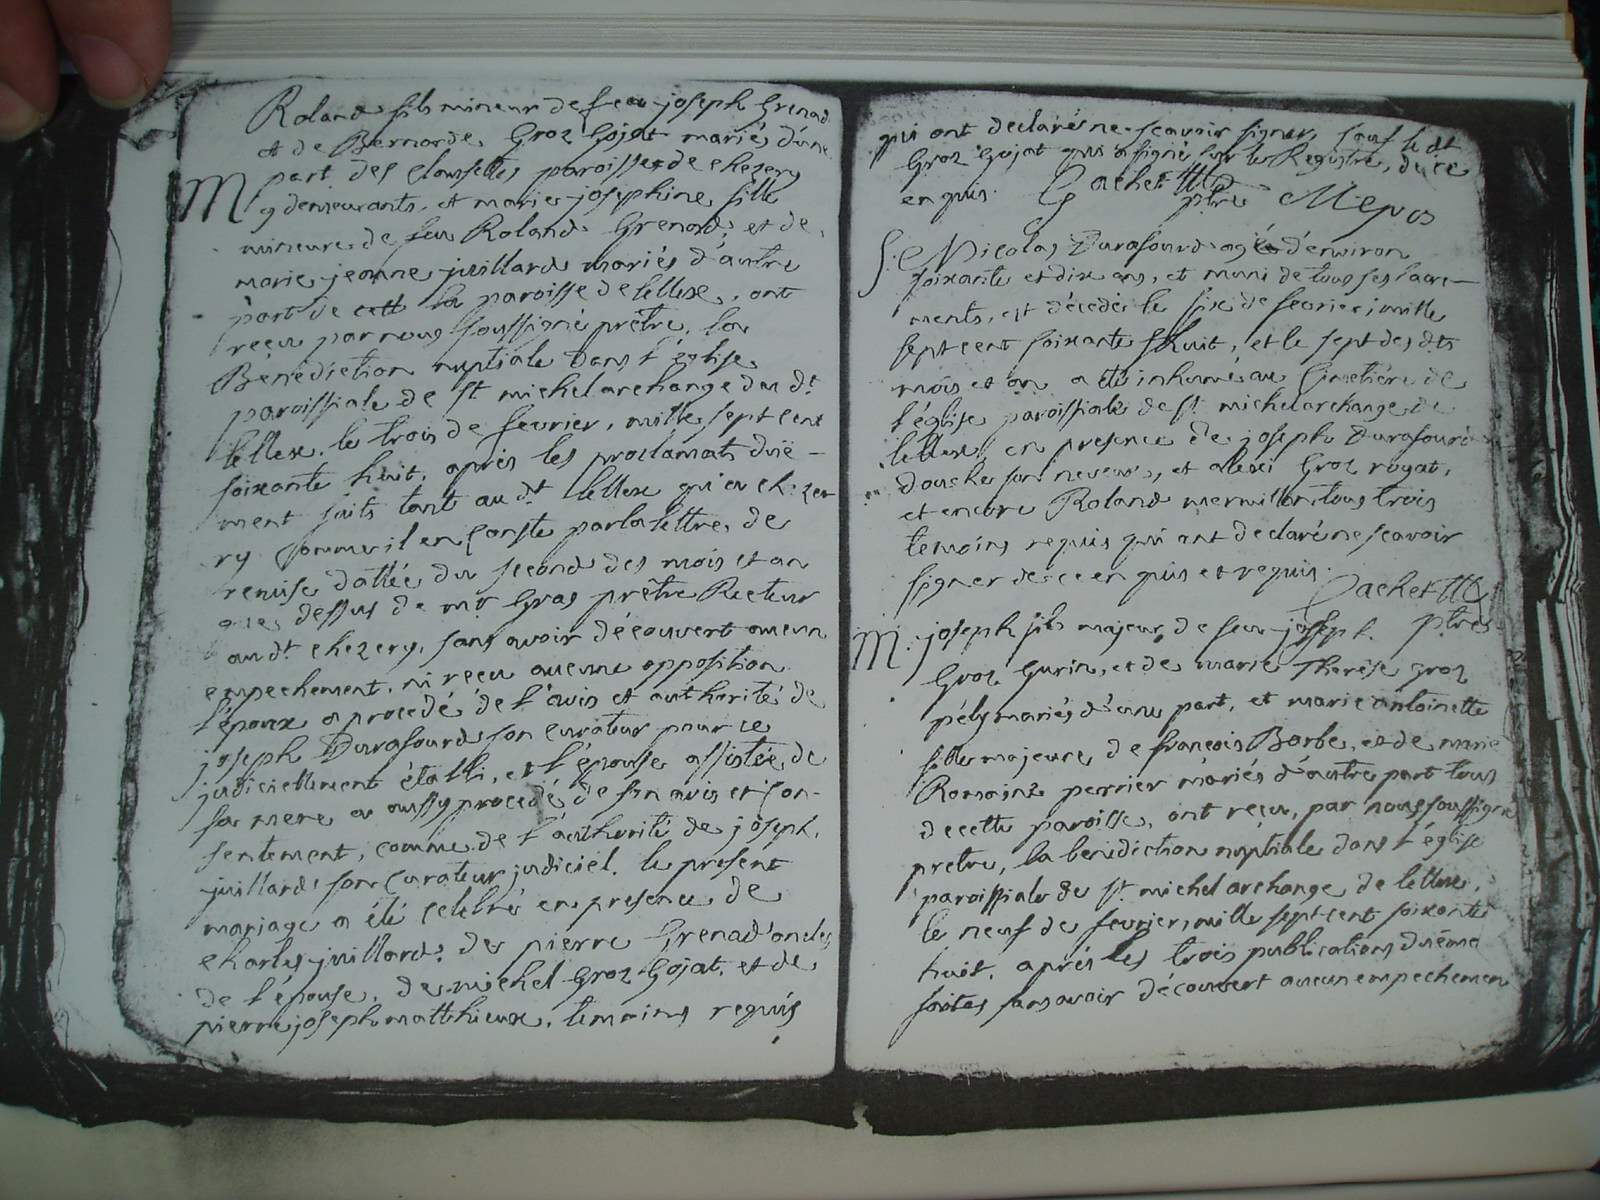 Roland fils mineur de feu joseph Grenad
et de Bernarde Groz Gojat mariés d'une
part des Clousettes paroisse de chezery
M
y demeurants, et marie josephine fille
mineure de feu Roland Grenard et de
marie jeanne juillard mariés d'autre
part de cett la paroisse de lellex, ont
reçu par nous soussigné prêtre, la
Bénédiction nuptiale dans l'église
paroissiale de st michel archange du dt
lellex, le trois de fevrier, mille sept cent
soixante huit, après les proclamats duë-
ment faits tant au dt lellex qu'a cheze-
ry comme il en conste par la lettre de
remise dattée du second des mois et an
que dessus de mr Gras prêtre Recteur
au dt chezery, sans avoir découvert aucun
empechement, ni reçu aucune opposition
l'époux a procedé de l'avis et authorité de
joseph Durafourd son curateur pour ce
judiciellement établi, et l'épouse assistée de
sa mere a aussy procedé de son avis et con-
sentement, comme de l'authorité de joseph
juillard son curateur judiciel. le present
mariage a été celebré en presence de
charles juillard, de pierre Grenad oncles
de l'épouse, de michel Groz Gojat, et de
pierre joseph matthieux, temoins requis
qui ont declaré ne scavoir signer, sauf le dt
Groz Gojat qui a signé sur le Registre, de ce
enquis. Gachet ptre
S. Nicolas Durafourd agé d'environ
soixante et dix ans, et muni de tous ses sacre-
ments, est décedé le six de fevrier mille
sept cent soixante huit, et le sept des dts
mois et an a été inhumé au Cimetière de
l'église paroissiale de st michel archange de
lellex, en presence de joseph Durafourd
douche son neveux, et alexi Groz royat,
et encore Roland mermillon tous trois
temoins requis qui ont declaré ne scavoir
signer de ce enquis et requis. Gachet
ptre
M. joseph fils majeur de feu joseph
Groz Gurin, et de marie Therèse groz
pély mariés d'une part, et marie antoinette
fille majeure de francois Barbe, et de marie
Romaine perrier mariés d'autre part tous
de cette paroisse, ont reçu, par nous soussigné
pretre, la benediction nuptiale dans l'église
paroissiale de st michel archange de lellex,
le neuf de fevrier, mille sept cent soixante
huit, après les trois publications duëment
faites sans avoir découvert aucun empechement